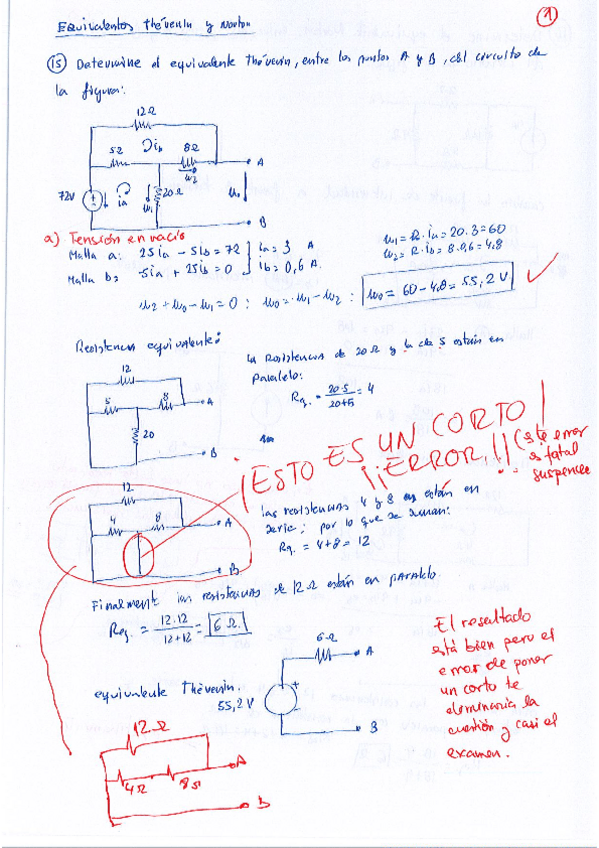 1
Equivalentes Thévenin y Norton
15 Determine el equivalente thévenin, entre los puntos A y B, del circuito de
la figura:
12Ω
5Ω
ib
8Ω
A
u2
72V
ia
u1
20Ω
u0
B
a) Tensión en vacío
Malla a: 25ia - 5ib = 72
ia = 3 A
Malla b: -5ia + 25ib = 0
ib = 0,6 A.
u1 = R.ia = 20.3 = 60
u2 = R.ib = 8.0,6 = 4.8
u2 + u0 - u1 = 0 : u0 = u1 - u2 :
u0 = 60 - 4.8 = 55,2 V
Resistencia equivalente:
12
5
8
A
20
B
la Resistencias de 20 Ω y la de 5 están en
Paralelo:
Req. = 20.5 / 20+5 = 4
¡ESTO ES UN CORTO!
¡¡ERROR!!
(este error
es fatal
suspence
12
4
8
A
B
las resistencias 4 y 8 están en
serie; por lo que se suman:
Req. = 4+8 = 12
Finalmente las resistencias de 12Ω están en paralelo
Req. = 12.12 / 12+12 = 6 Ω.
El resultado
está bien pero el
error de poner
un corto te
eliminaría la
cuestión y casi el
examen.
equivalente Thévenin
6Ω
A
55,2 V
+
B
12Ω
4Ω
8Ω
A
B